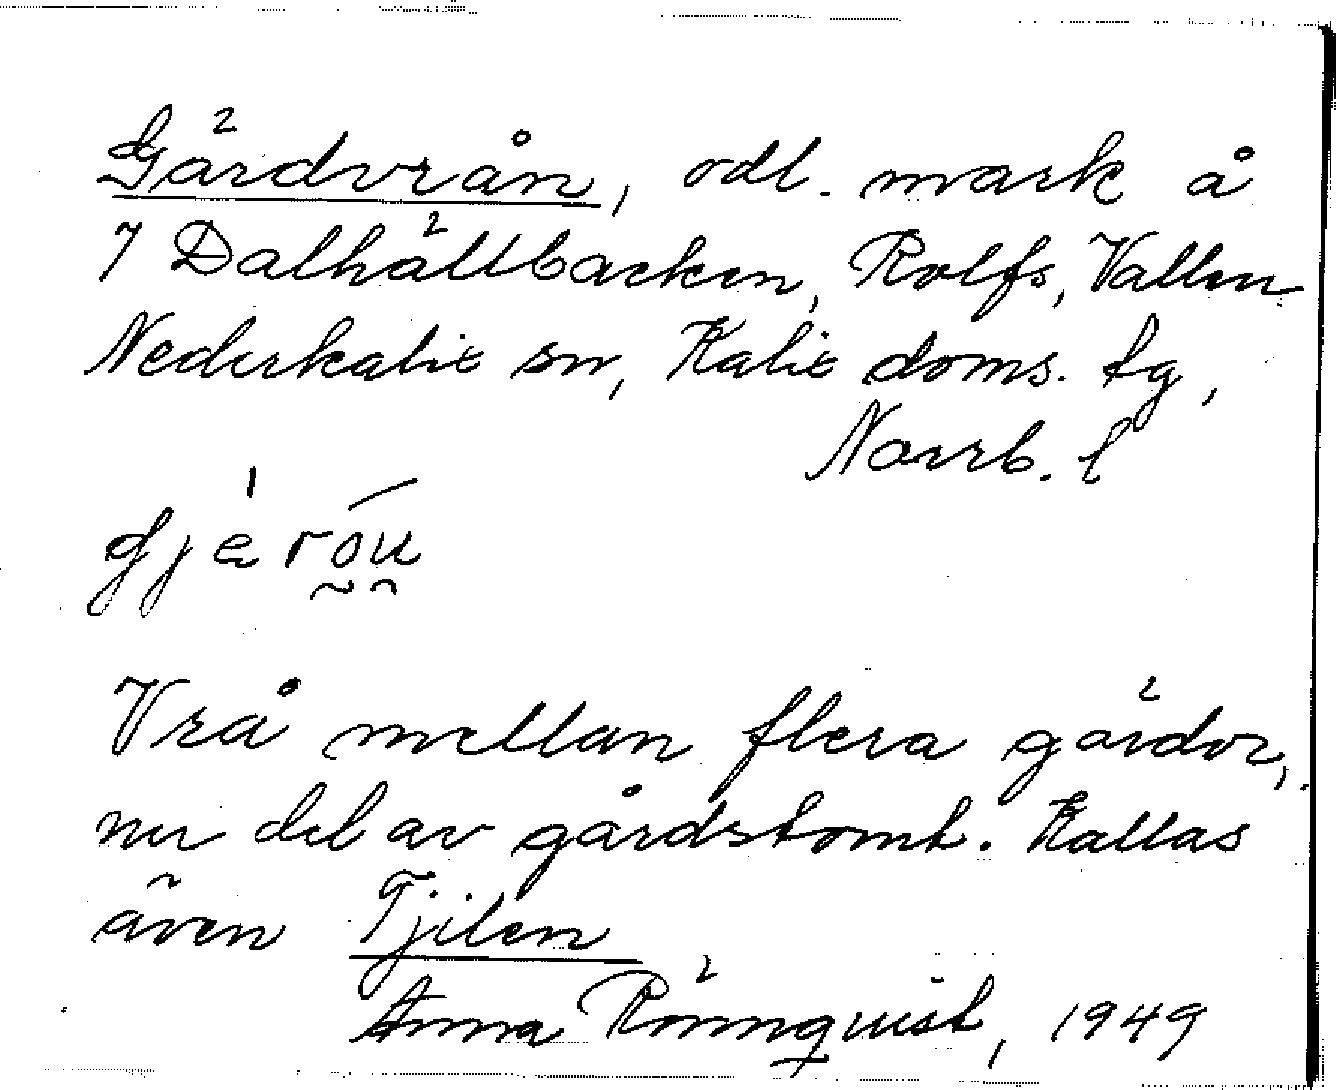 Gärdvrån, odl. mark å
7 Dalhällbacken, Rolfs, Vallen
Nederkalix sn, Kalix doms. tg,
Norrb. l
Vrå mellan flera gärdor,
nu del av gårdstomt. Kallas
även Tjilen
Anna Rönnquist, 1949